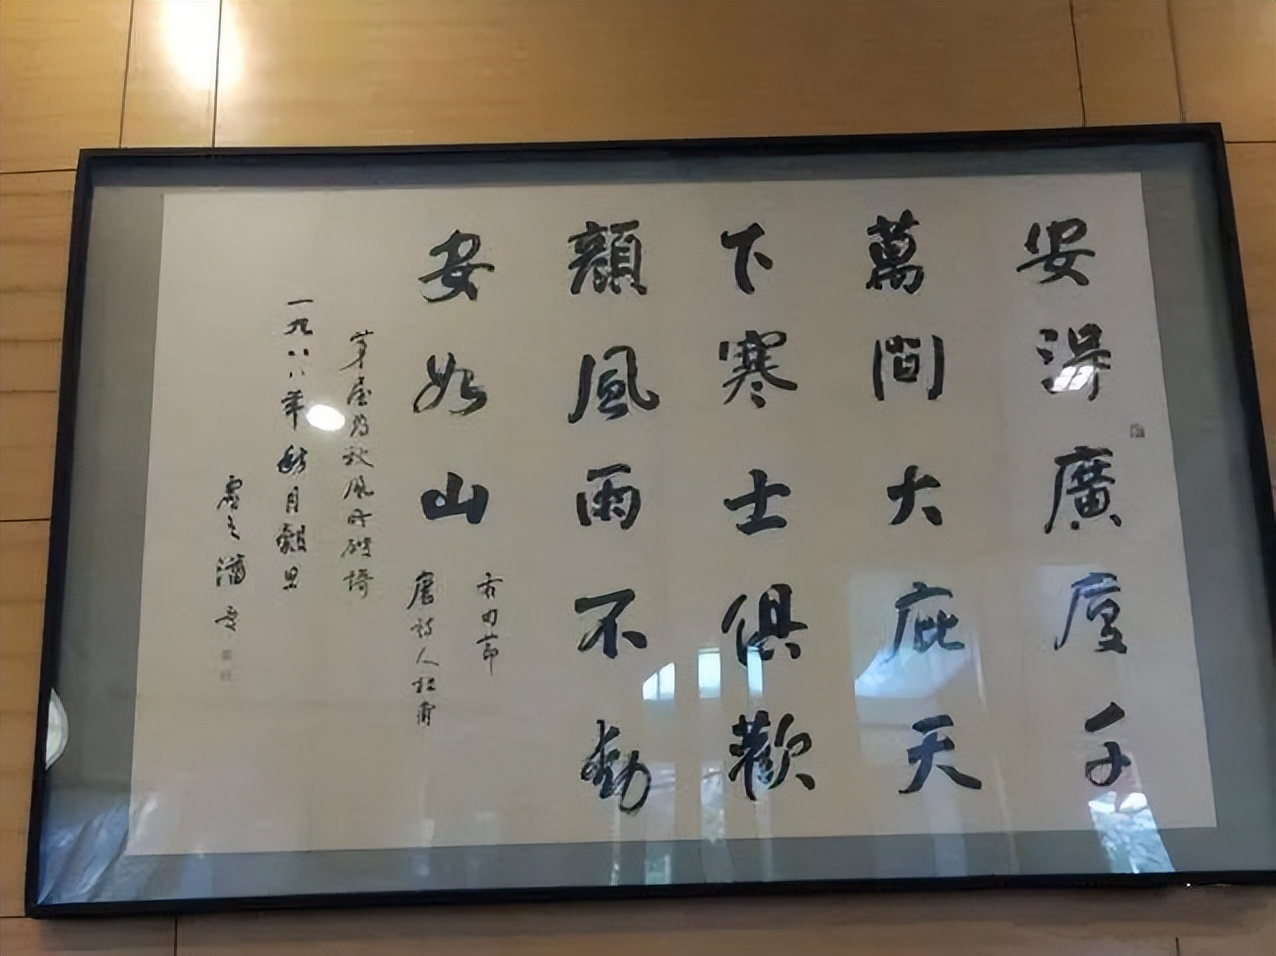 安得廣厦千
萬間大庇天
下寒士俱歡
顏風雨不動
安如山
右句節
唐詩人杜甫
茅屋為秋風所破謌
一九八八年
月穀旦